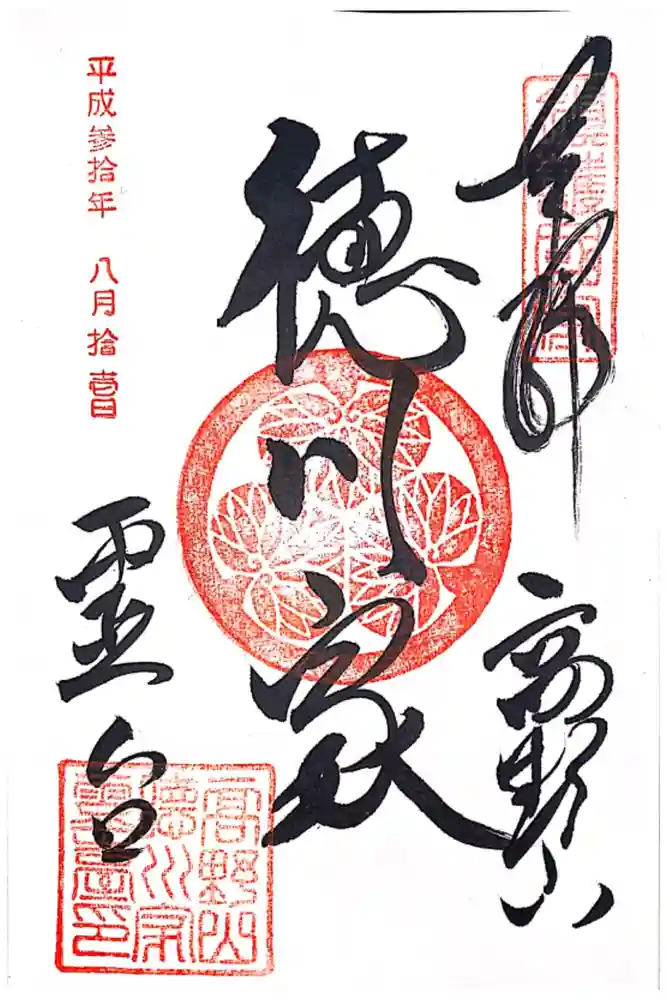 奉拝
高野山
徳川家
霊台
平成参拾年 八月拾壹日
高野山
徳川家
霊臺印